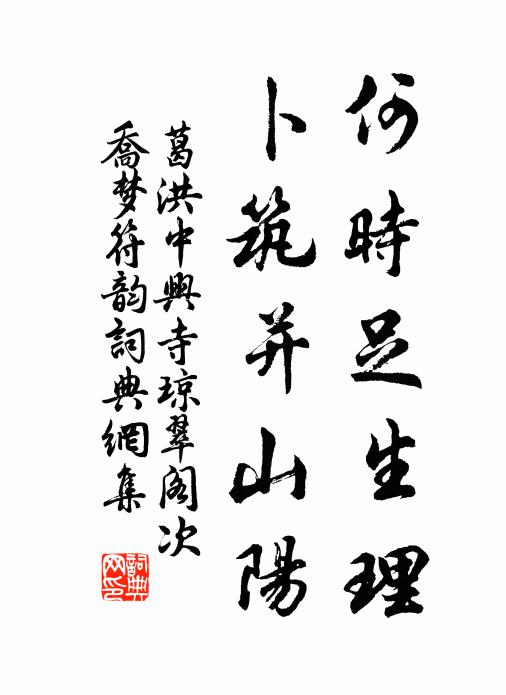 何時足生理
卜筑并山陽
葛洪中興寺琼翠阁次
喬梦符韵詞典網集
詞典网印